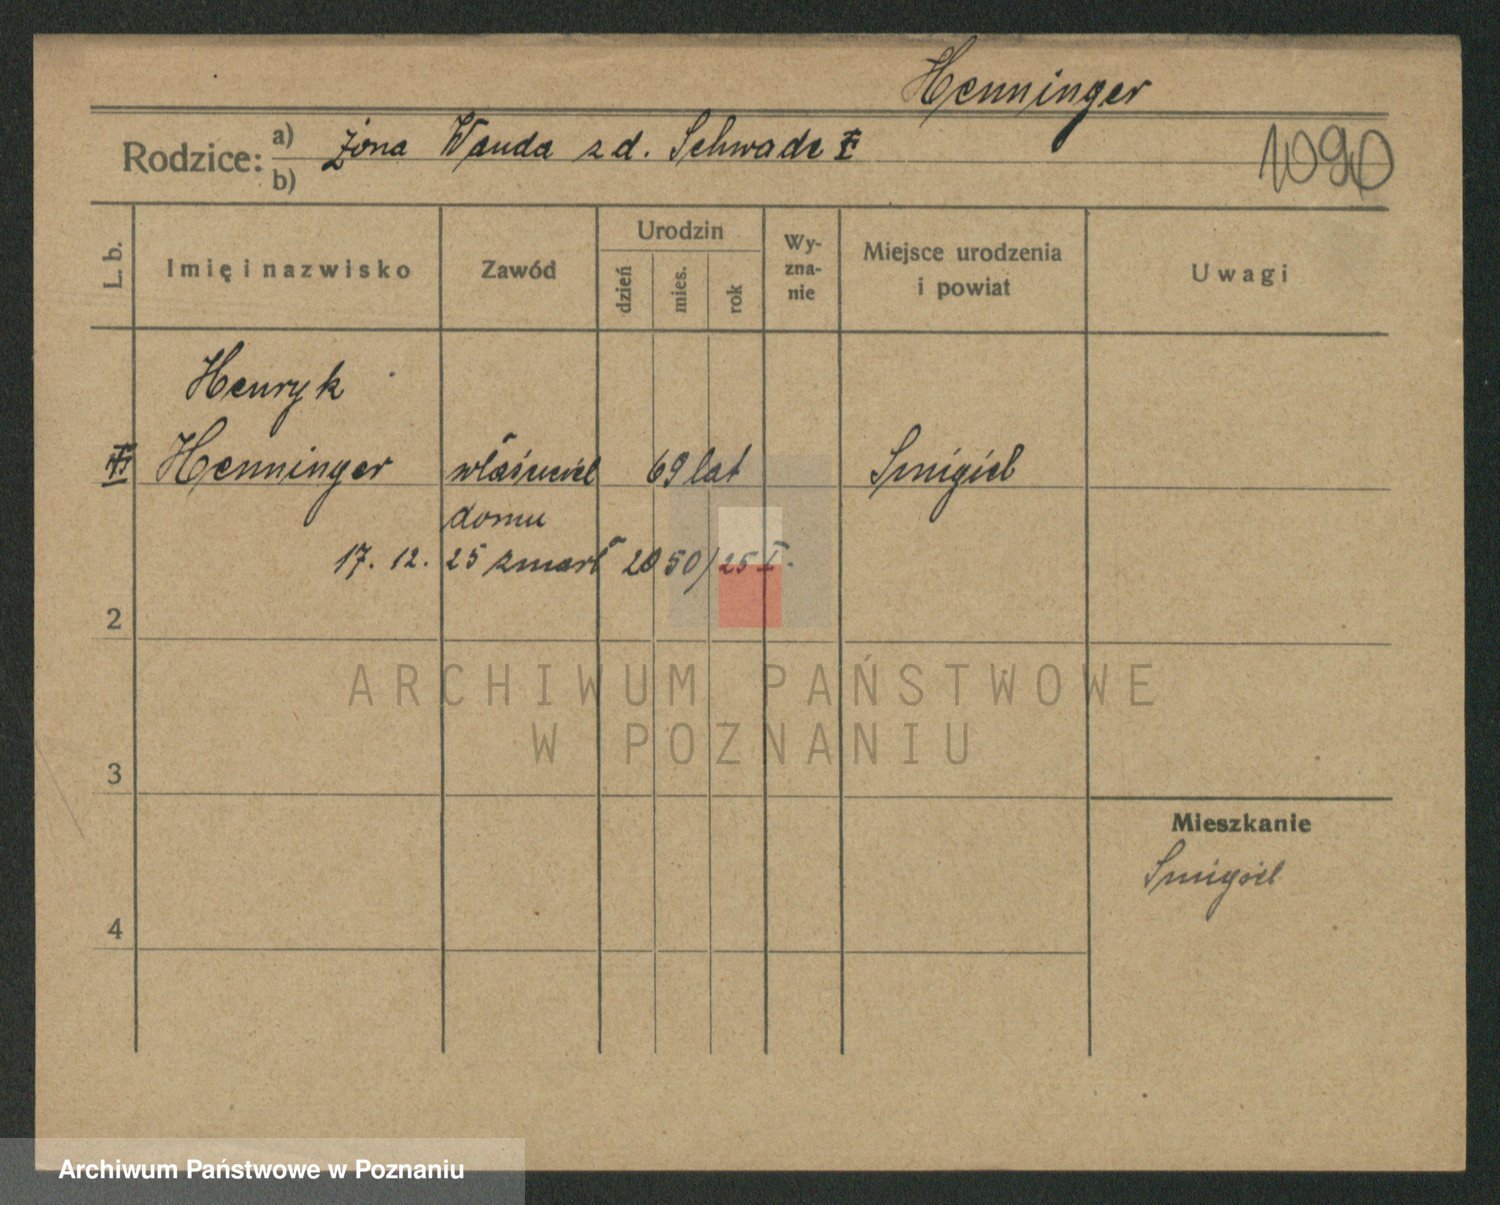 Henninger
Rodzice: a) żona Wanda z d. Schwade
b)
1090
L. b.
Imię i nazwisko
Zawód
Urodzin
dzień
mies.
rok
Wy-
zna-
nie
Miejsce urodzenia
i powiat
Uwagi
Henryk
Henninger właściciel 69 lat Śmigiel
domu
17. 12. 25 zmarł 2050/25 I.
2
3
4
Mieszkanie
Śmigiel
ARCHIWUM PAŃSTWOWE
W POZNANIU
Archiwum Państwowe w Poznaniu